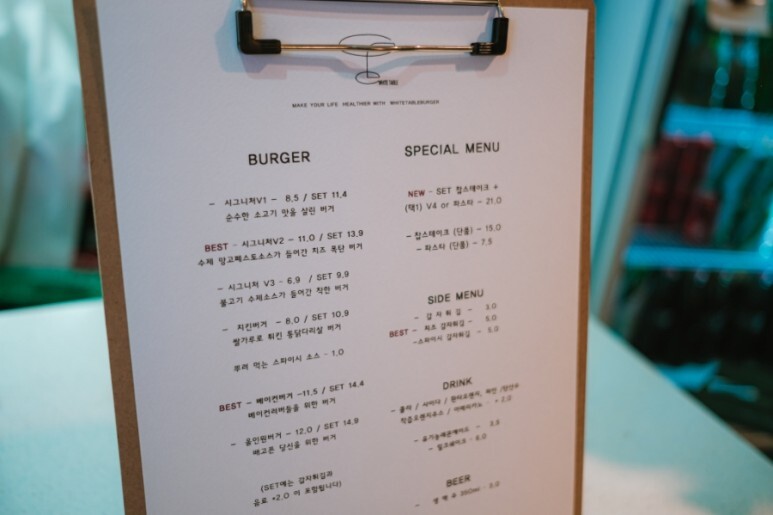 WHITE TABLE
MAKE YOUR LIFE HEALTHIER WITH WHITETABLEBURGER
BURGER
- 시그니처V1 - 8,5 / SET 11,4
순수한 소고기 맛을 살린 버거
BEST - 시그니처V2 - 11,0 / SET 13,9
수제 망고페스토소스가 들어간 치즈 폭탄 버거
- 시그니처 V3 - 6,9 / SET 9,9
불고기 수제소스가 들어간 착한 버거
- 치킨버거 - 8,0 / SET 10,9
쌀가루로 튀킨 통닭다리살 버거
뿌려 먹는 스파이시 소스 - 1,0
BEST - 베이컨버거 -11,5 / SET 14,4
베이컨러버들을 위한 버거
- 올인원버거 - 12,0 / SET 14,9
배고픈 당신을 위한 버거
(SET에는 감자튀김과
음료 *2,0 이 포함됩니다)
SPECIAL MENU
NEW - SET 찹스테이크 +
(택1) V4 or 파스타 - 21,0
- 찹스테이크 (단품) - 15,0
- 파스타 (단품) - 7,5
SIDE MENU
- 감자튀김 - 3,0
BEST - 치즈 감자튀김 - 5,0
-스파이시 감자튀김 - 5,0
DRINK
- 콜라 / 사이다 /
- 유기농레몬에이드 -
- 밀크쉐이크 - 6,0
BEER
- 생맥주 350ml - 3,0